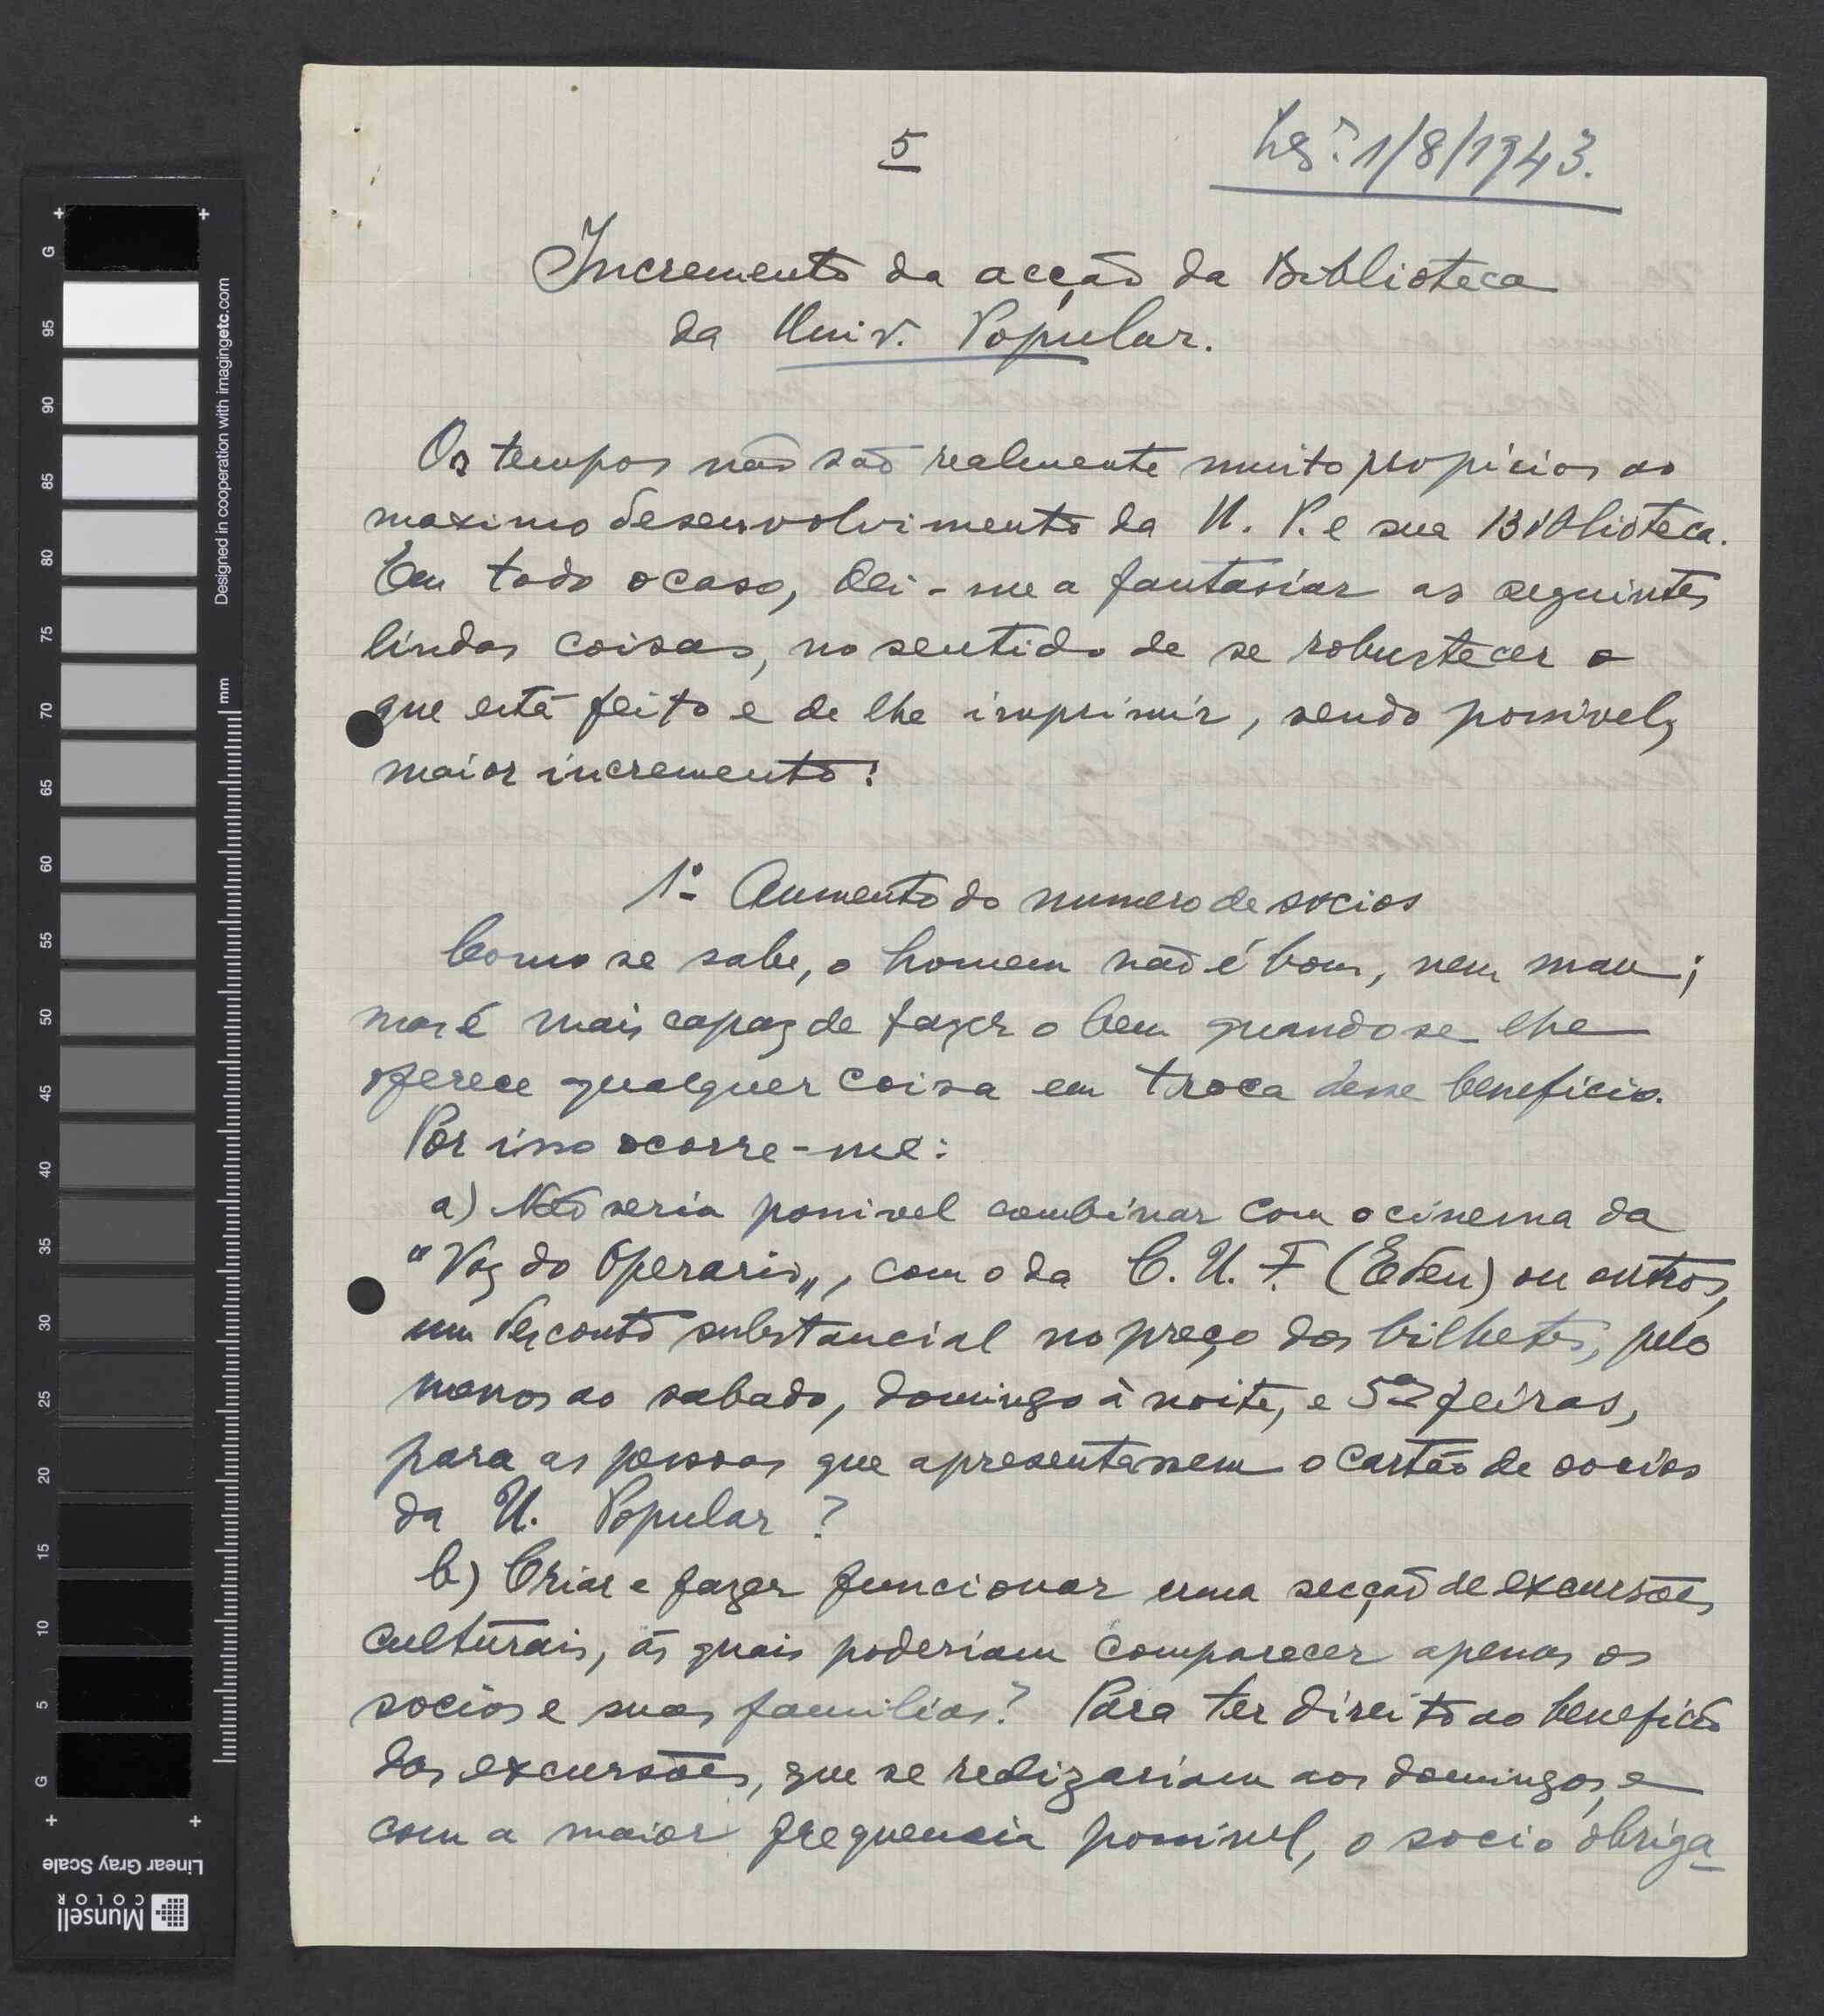 5
Lx.ª 1/8/1943.
Incremento da acção da Biblioteca
da Univ. Popular.
Os tempos não são realmente muito propicios ao
maximo desenvolvimento da U. P. e sua Biblioteca.
Em todo o caso, dei-me a fantasiar as seguintes
lindas coisas, no sentido de se robustecer o
que está feito e de lhe imprimir, sendo possivel,
maior incremento:
1º Aumento do numero de socios
Como se sabe, o homem não é bom, nem mau;
mas é mais capaz de fazer o bem quando se lhe
oferece qualquer coisa em troca desse beneficio.
Por isso ocorre-me:
a) Não seria possivel combinar com o cinema da
"Voz do Operario„, com o da C. U. F. (Eden) ou outros,
um desconto substancial no preço dos bilhetes, pelo
menos ao sabado, domingo à noite, e 5as feiras,
para as pessoas que apresentassem o cartão de socios
da U. Popular?
b) Criar e fazer funcionar uma secção de excursões
culturais, ás quais poderiam comparecer apenas os
socios e suas familias? Para ter direito ao beneficio
das excursões, que se realizariam aos domingos, e
com a maior frequencia possivel, o socio obriga-
Designed in cooperation with imagingetc.com
mm
G
95
90
85
80
75
70
65
60
55
50
45
40
35
30
25
20
15
10
5
G
Linear Gray Scale
Munsell
COLOR